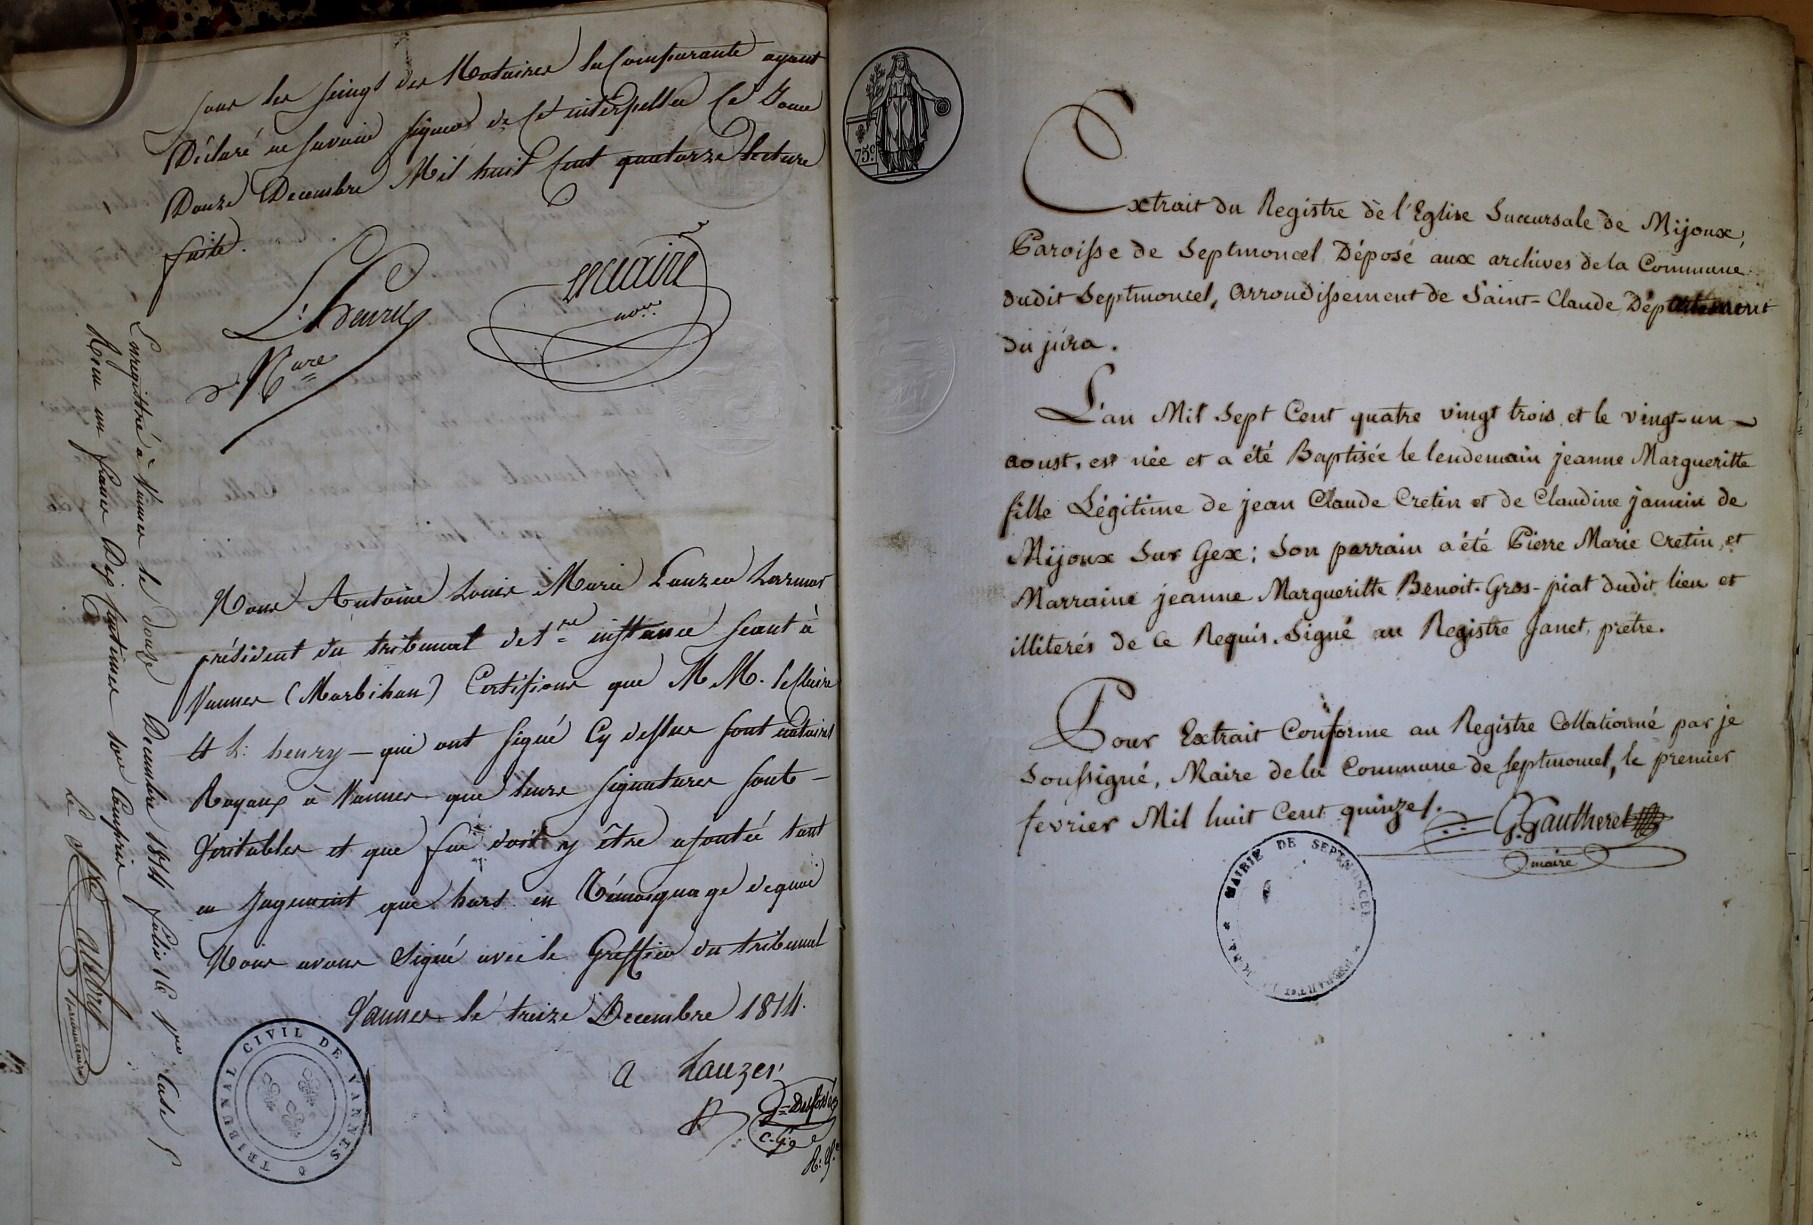 sous les seings des Notaires la Comparante ayant
Déclaré ne savoir signer de ce interpellée ce Jour
Douze Decembre Mil huit cent quatorze lecture
faite.
L. henry
Nre
Leclaire
nore.
Enregistré à Vannes le douze Decembre 1814 folio 16 Vo Case 5
Reçu un franc Dix centimes pour
Nous Antoine Louis Marie Lauzer Larmor
président du tribunal de 1re instance séant à
Vannes (Morbihan) Certifions que M M. leclaire
et h: henry — qui ont signé Cy dessus sont notaires
Royaux à Vannes que leurs signatures sont —
Véritables et que foi doit y être ajoutée tant
en Jugement que hors en Témoignage de quoi
Nous avons signé avec le Greffier du tribunal
Vannes le treize Decembre 1814.
a Lauzer
TRIBUNAL CIVIL DE VANNES
75c
Extrait du Registre de l'Eglise Succursale de Mijoux,
Paroisse de Septmoncel Déposé aux archives de la Commune
dudit Septmoncel, arrondissement de Saint-Claude, Département
du jura.
L'an Mil Sept Cent quatre vingt trois et le vingt-un
aoust, est née et a été Baptisée le lendemain jeanne Margueritte
fille Légitime de jean Claude Cretin et de Claudine janin de
Mijoux sur Gex; Son parrain a été Pierre Marie Cretin, et
Marraine jeanne Margueritte Benoit-Gros-piat dudit lieu et
illiterés de ce Requis. Signé au Registre Janet, prêtre.
Pour Extrait Conforme au Registre Collationné par je
Soussigné, Maire de la Commune de Septmoncel, le premier
fevrier Mil huit Cent quinze/.
G. Gautheret
maire
MAIRIE DE SEPTMONCEL